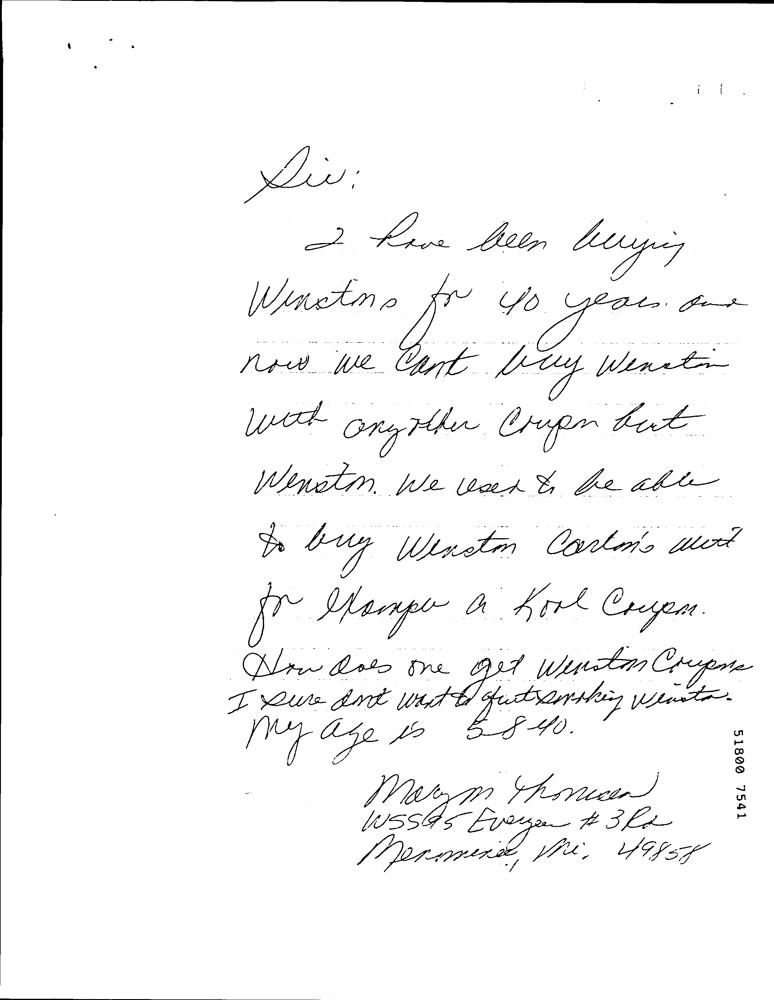 Sir:
I have been buying
Winstons for 40 years and
now we Cant buy Winston
with any other Coupon but
Winston. We used to be able
to buy Winston Carton's with
for Example a Kool Coupon.
How does one get Winston Coupons
I sure don't want to quit smoking Winston.
My age is 58 yo.
Mary M Thomsen
#3 Rd
Menominee, Mi. 49858
51800 7541